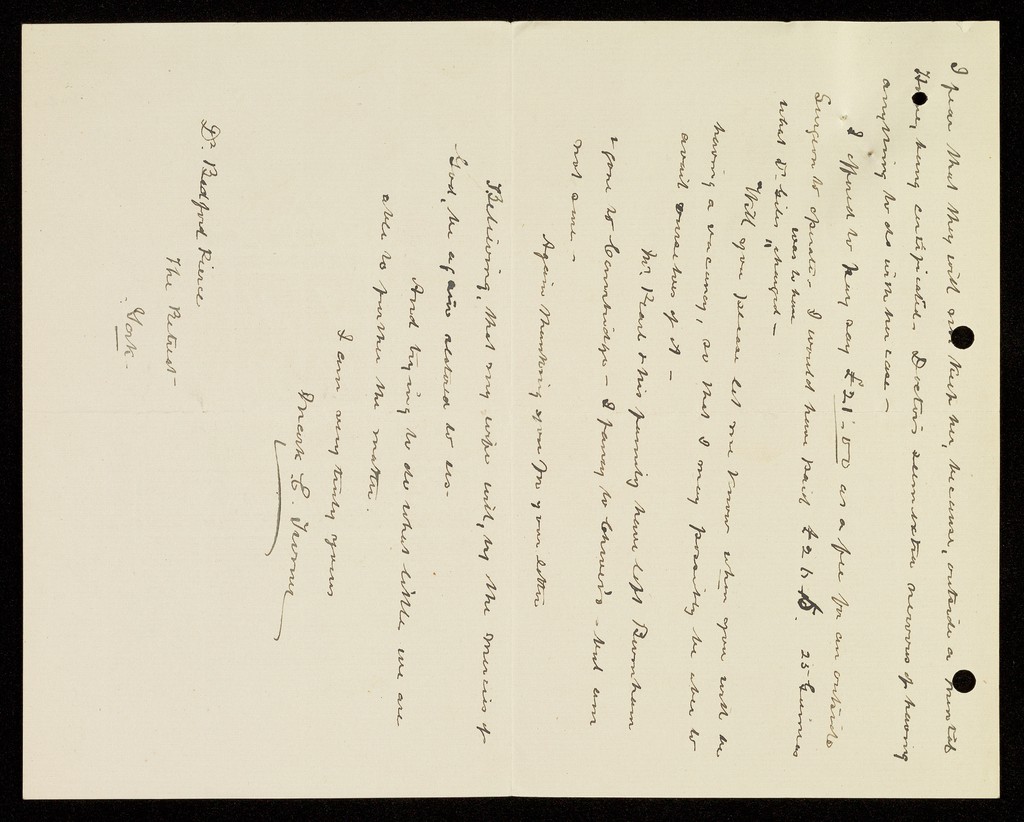 I fear that they will not keep her, because, outside a Mental
Home, being certified. Doctors seem extra nervous of having
anything to do with her case –
I offered to pay say £21-0-0 as a fee for an outside
Surgeon to operate – I would have paid £26-5. 25 Guineas
was to have
what Dr Giles charged –
Will you please let me know when you will be
having a vacancy, so that I may possibly be able to
avail ourselves of it –
Mr. Pearl & his family have left Burnham
& gone to Cambridge – I fancy to – but am
not sure –
Again thanking you for your letter
Believing, that my wife will, by the mercies of
God, be again restored to us –
And trying to do what little we are
able to further the matter.
I am very truly yours
Mark E.
Dr. Bedford Pierce
The Retreat –
York –